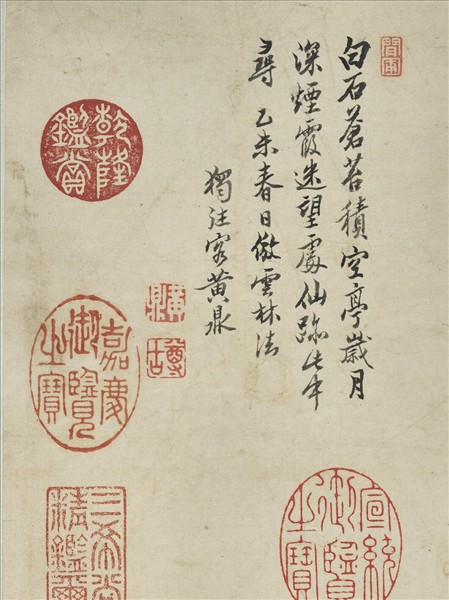 白石蒼苔積空亭歲月
深煙霞迷望處仙跡此中
尋乙未春日倣雲林法
獨往客黃鼎
黃鼎
尊古
乾隆鑑賞
嘉慶御覽之寶
三希堂精鑑璽
宣統御覽之寶